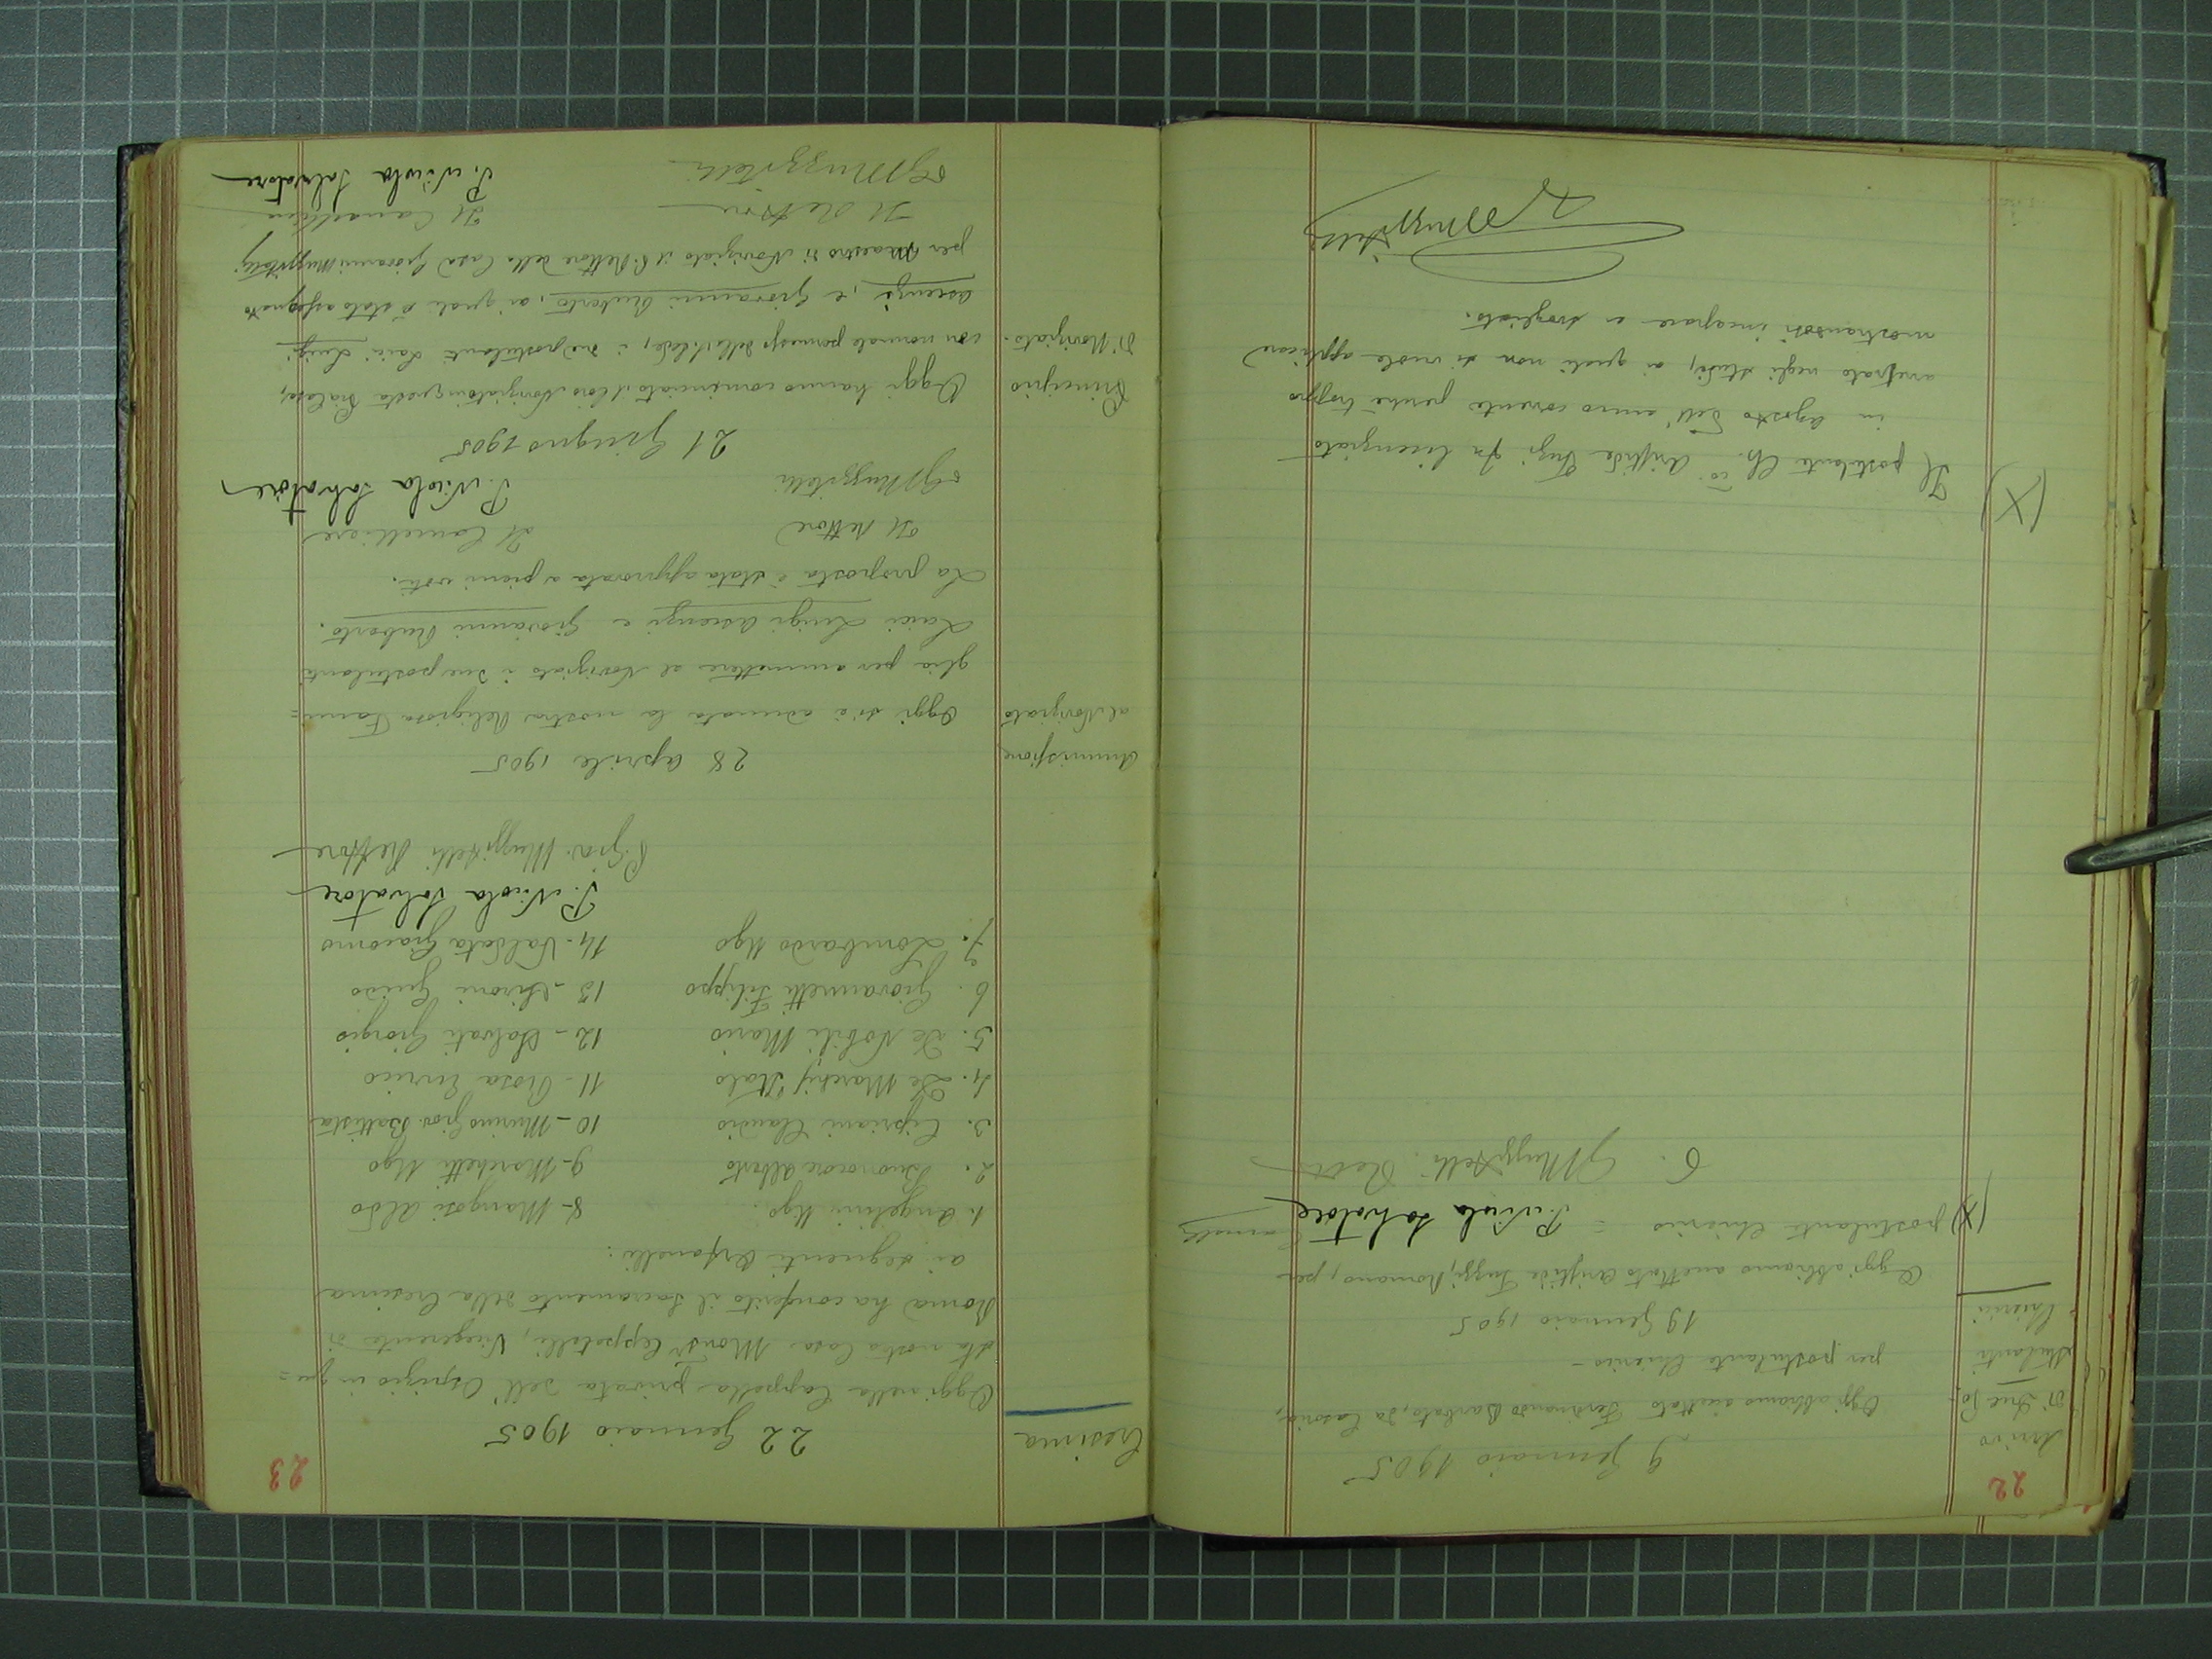 22
Arrivo
di due Po-
stulanti
Chierici
9 Gennaio 1905
Oggi abbiamo accettato Ferdinando Barbato, da Casoria,
per postulante Chierico -
19 Gennaio 1905
Oggi abbiamo accettato Aristide Fuggi, Romano, per
(X) postulante chierico = P. Nicola Salvatore
G Muzzitelli
(X)
Il postulante Ch.co Aristide Fuggi fu licenziato
in Agosto dell'anno corrente perchè troppo
arretrato negli studi, ai quali non si vuole applicare
mostrandosi incapace e svogliato.
G Muzzitelli
23
Cresima
22 Gennaio 1905
Oggi nella Cappella privata dell'Ospizio in que=
sta nostra Casa Monsr Ceppetelli, Vicegerente di
Roma ha conferito il Sacramento della Cresima
ai seguenti Orfanelli:
1. Angelini Ugo. 8- Mangosi Aldo
2. Buonocore Alberto 9- Marchetti Ugo
3. Cipriani Claudio 10- Murino Giov. Battista
4. De Marchis Italo 11- Rosa Enrico
5. De Nobili Mario 12- Salvati Giorgio
6. Giovannetti Filippo 13- Sironi Guido
7. Lombardo Ugo 14- Valdata Giacomo
P. Nicola Salvatore
P. Giov. Muzzitelli Rettore
28 Aprile 1905
Ammissione
al Noviziato
Oggi si è adunata la nostra Religiosa Fami=
glia per ammettere al Noviziato i due postulanti
Laici Luigi Ascenzi e Giovanni Ruberto.
La proposta è stata approvata a pieni voti.
Il Rettore Il Cancelliere
G Muzzitelli P. Nicola Salvatore
21 Giugno 1905
Principio
di Noviziato.
Oggi hanno cominciato il loro Noviziato in questa Pia Casa,
con normale permesso della S. Sede, i due postulanti Laici Luigi
Ascenzi, e Giovanni Ruberto, ai quali è stato assegnato
per Maestro di Noviziato il P. Rettore della Casa Giovanni Muzzitelli
Il Rettore Il Cancelliere
G Muzzitelli P. Nicola Salvatore